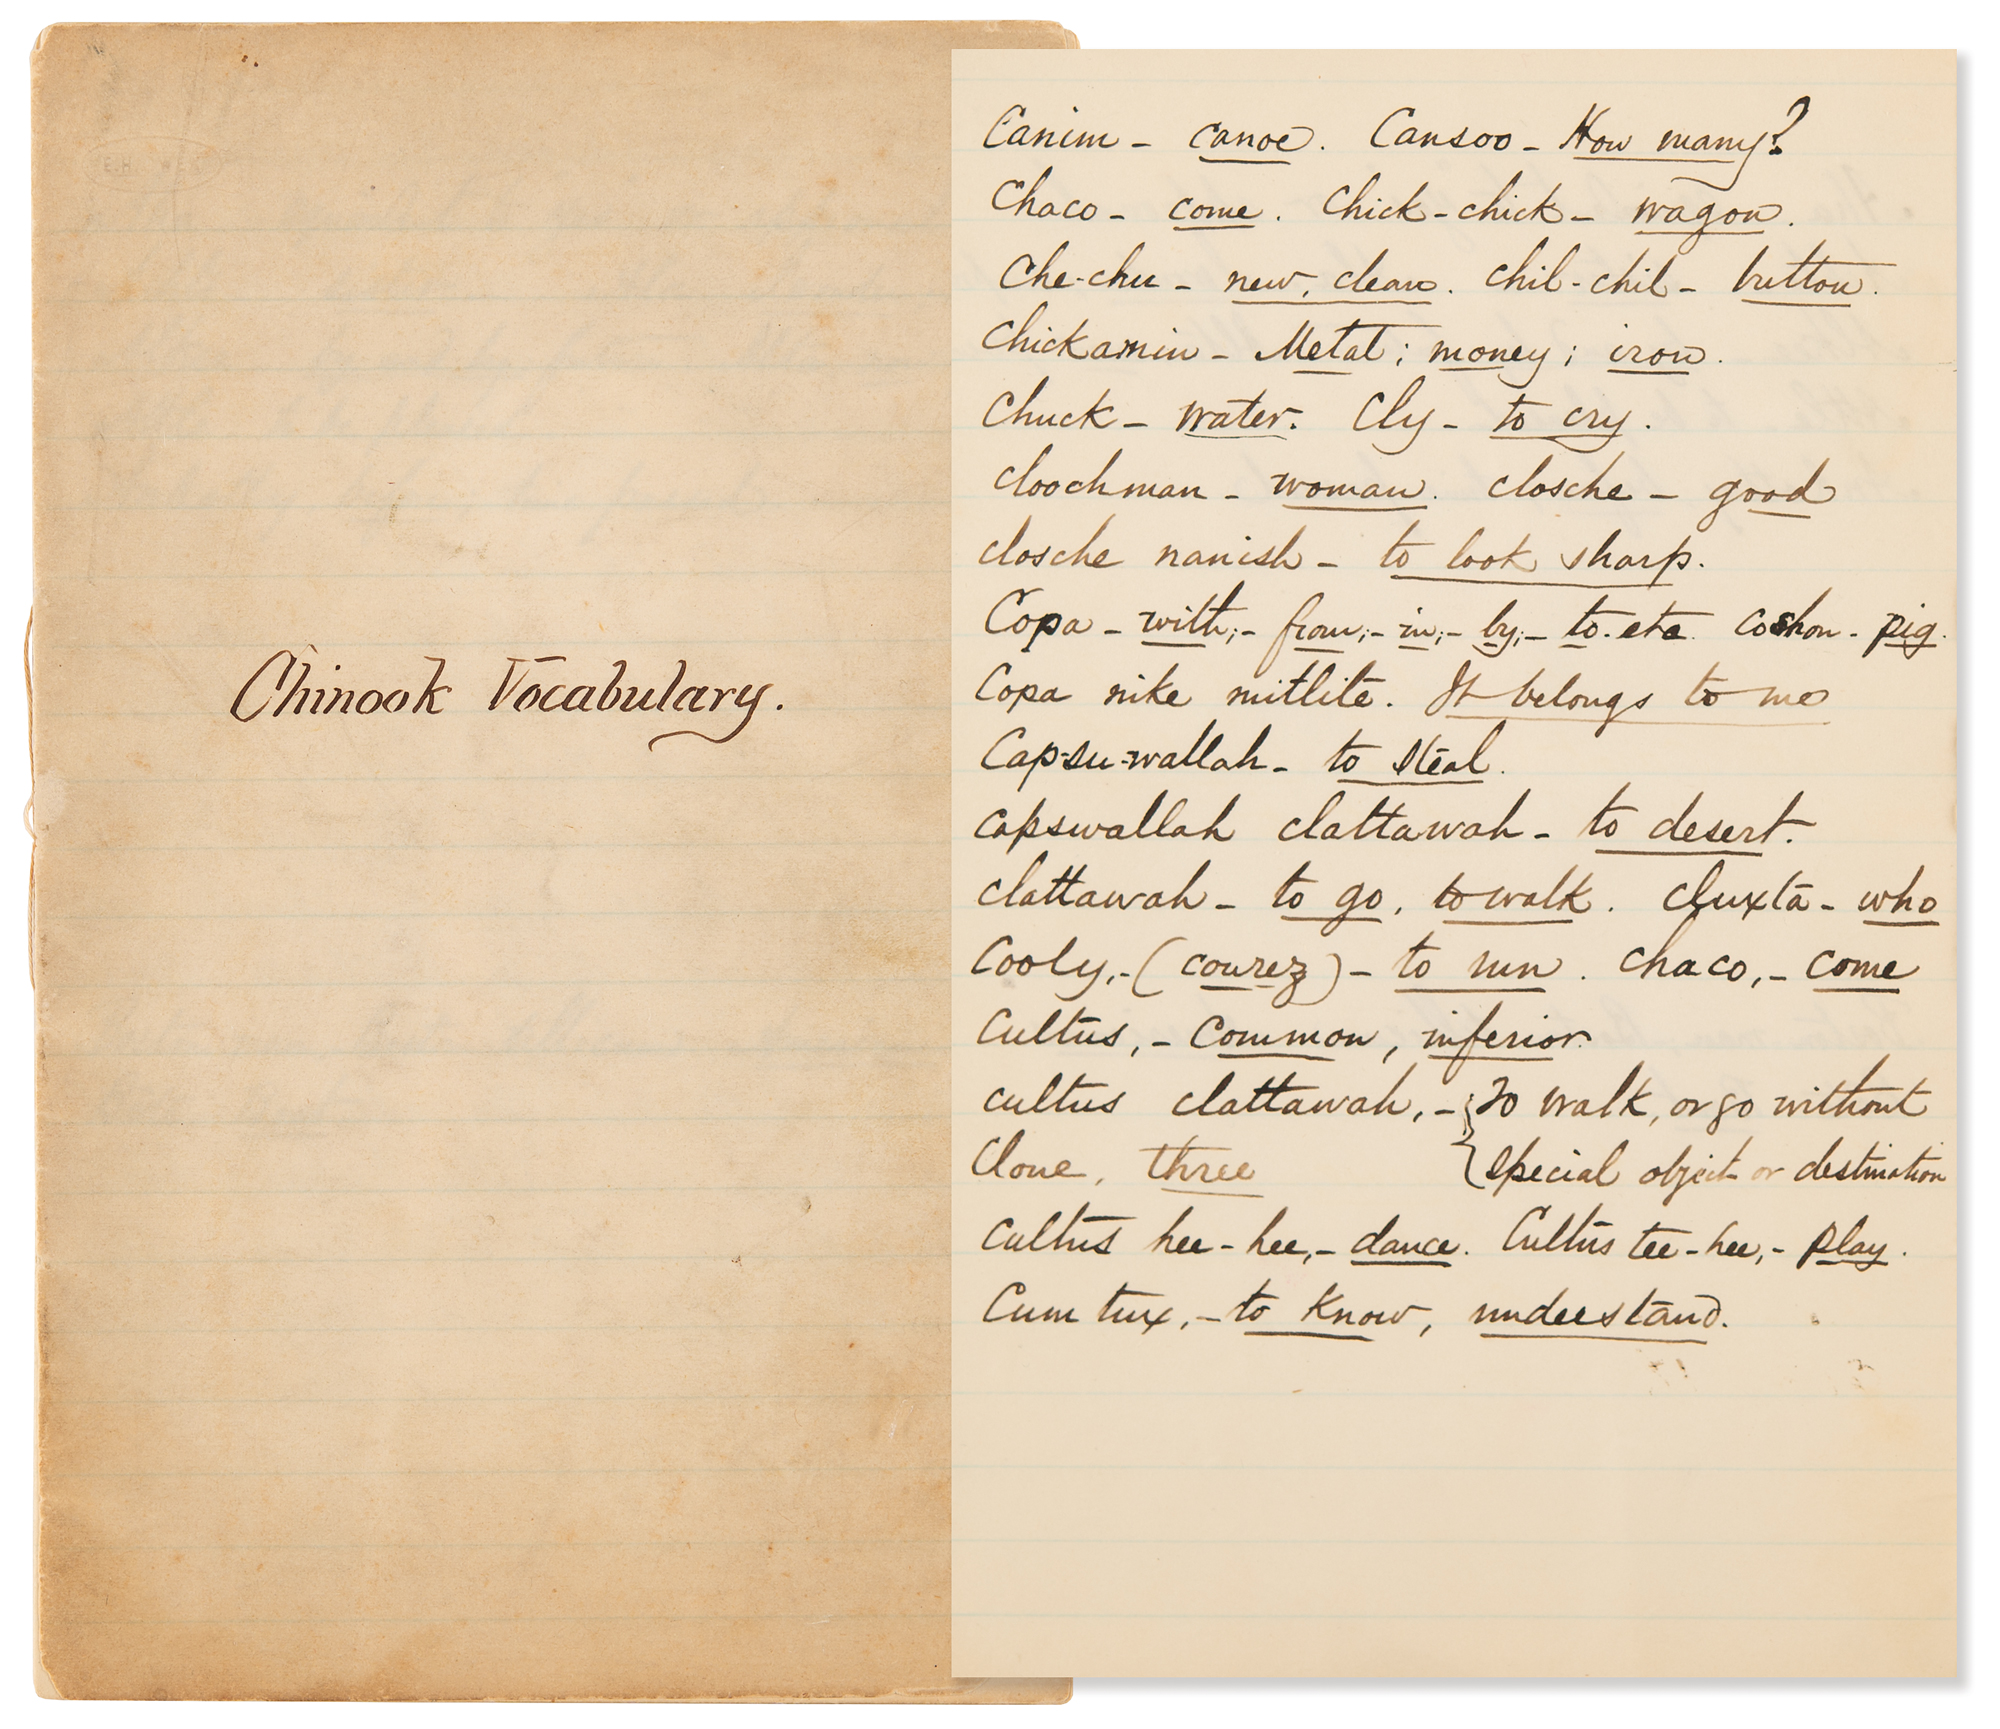 Chinook Vocabulary.
Canim - canoe. Cansoo - How many?
Chaco - come. Chick-chick - wagon.
Che-chu - new, clean. Chil-chil - button.
Chickamin - Metal; money; iron.
Chuck - water. Cly - to cry.
Cloochman - woman. closche - good
closche nanish - to look sharp.
Copa - with;- from;- in;- by;- to. etc. coshon - pig.
Copa nike mitlite. It belongs to me
Cap-su-wallah - to steal.
capswallah clattawah - to desert.
clattawah - to go, to walk. cluxta - who
Cooly,-(courez) - to run. chaco,- come
Cultus,- Common, inferior.
cultus clattawah,- { To walk, or go without
Clone, three { special object or destination
Cultus hee-hee,- dance. Cultus tee-hee,- play.
Cum tux,- to know, understand.